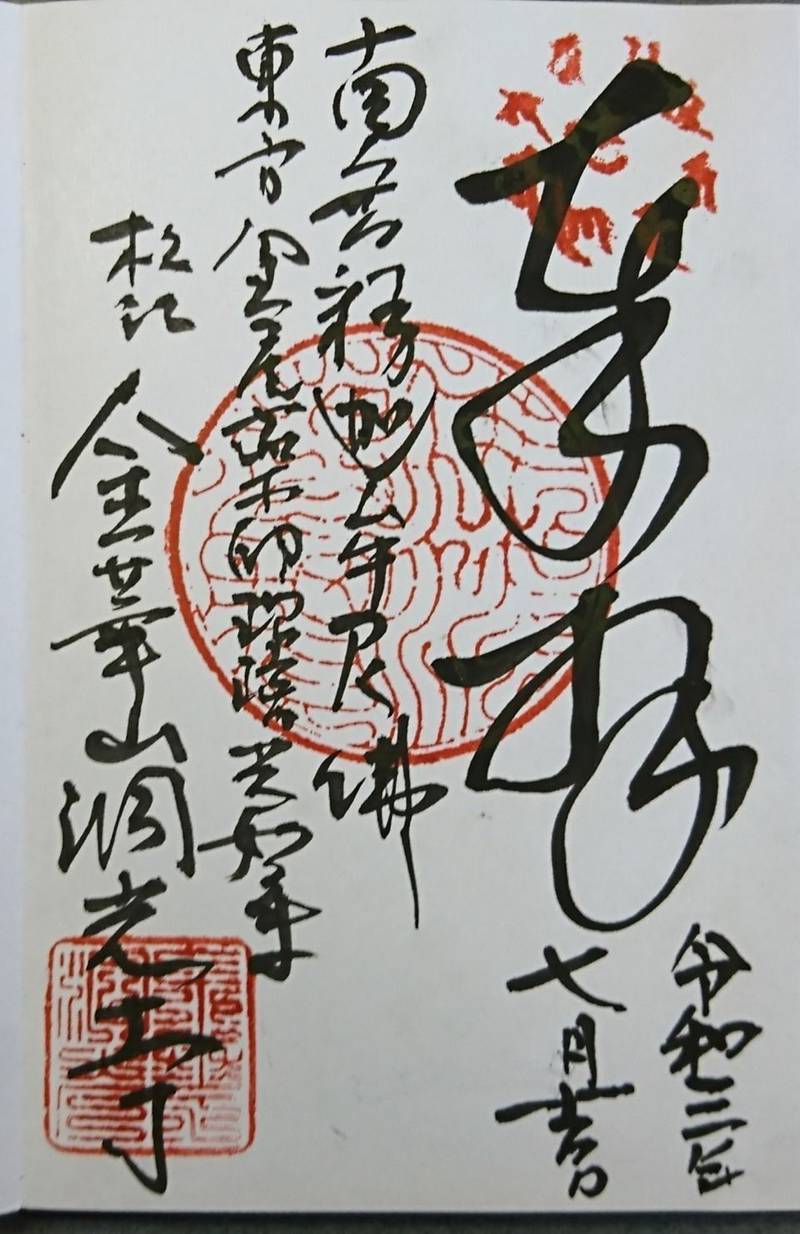 奉拝
令和三年
七月吉日
南無釋迦牟尼佛
東方金尾薬師瑠璃光如来
松江
金華山洞光寺